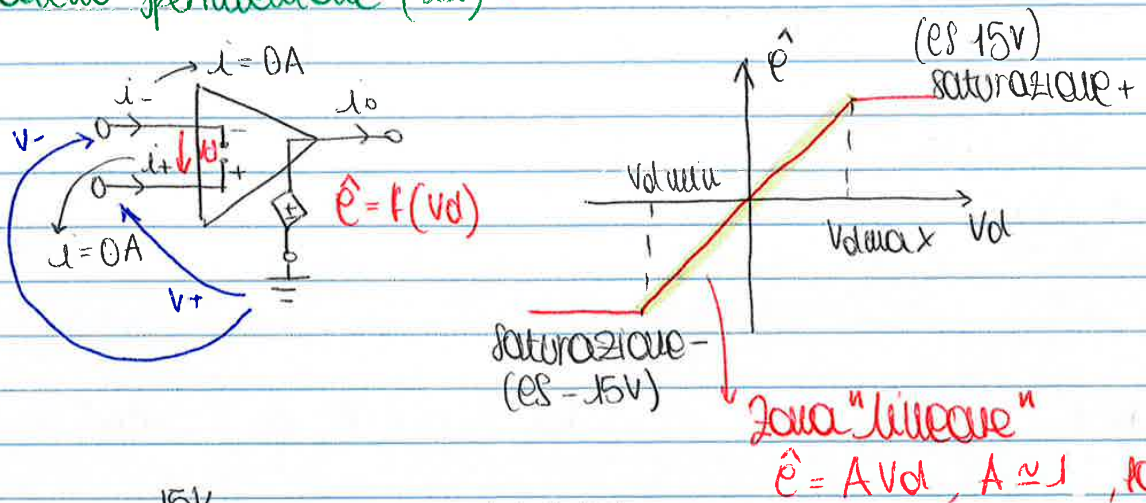 i = 0A
i-
i0
V-
i+
ê = f(Vd)
i = 0A
V+
(es 15V)
saturazione +
ê
Vdmin
Vdmax
Vd
saturazione -
(es -15V)
Zona "lineare"
ê = A Vd, A ≃ 1
15V